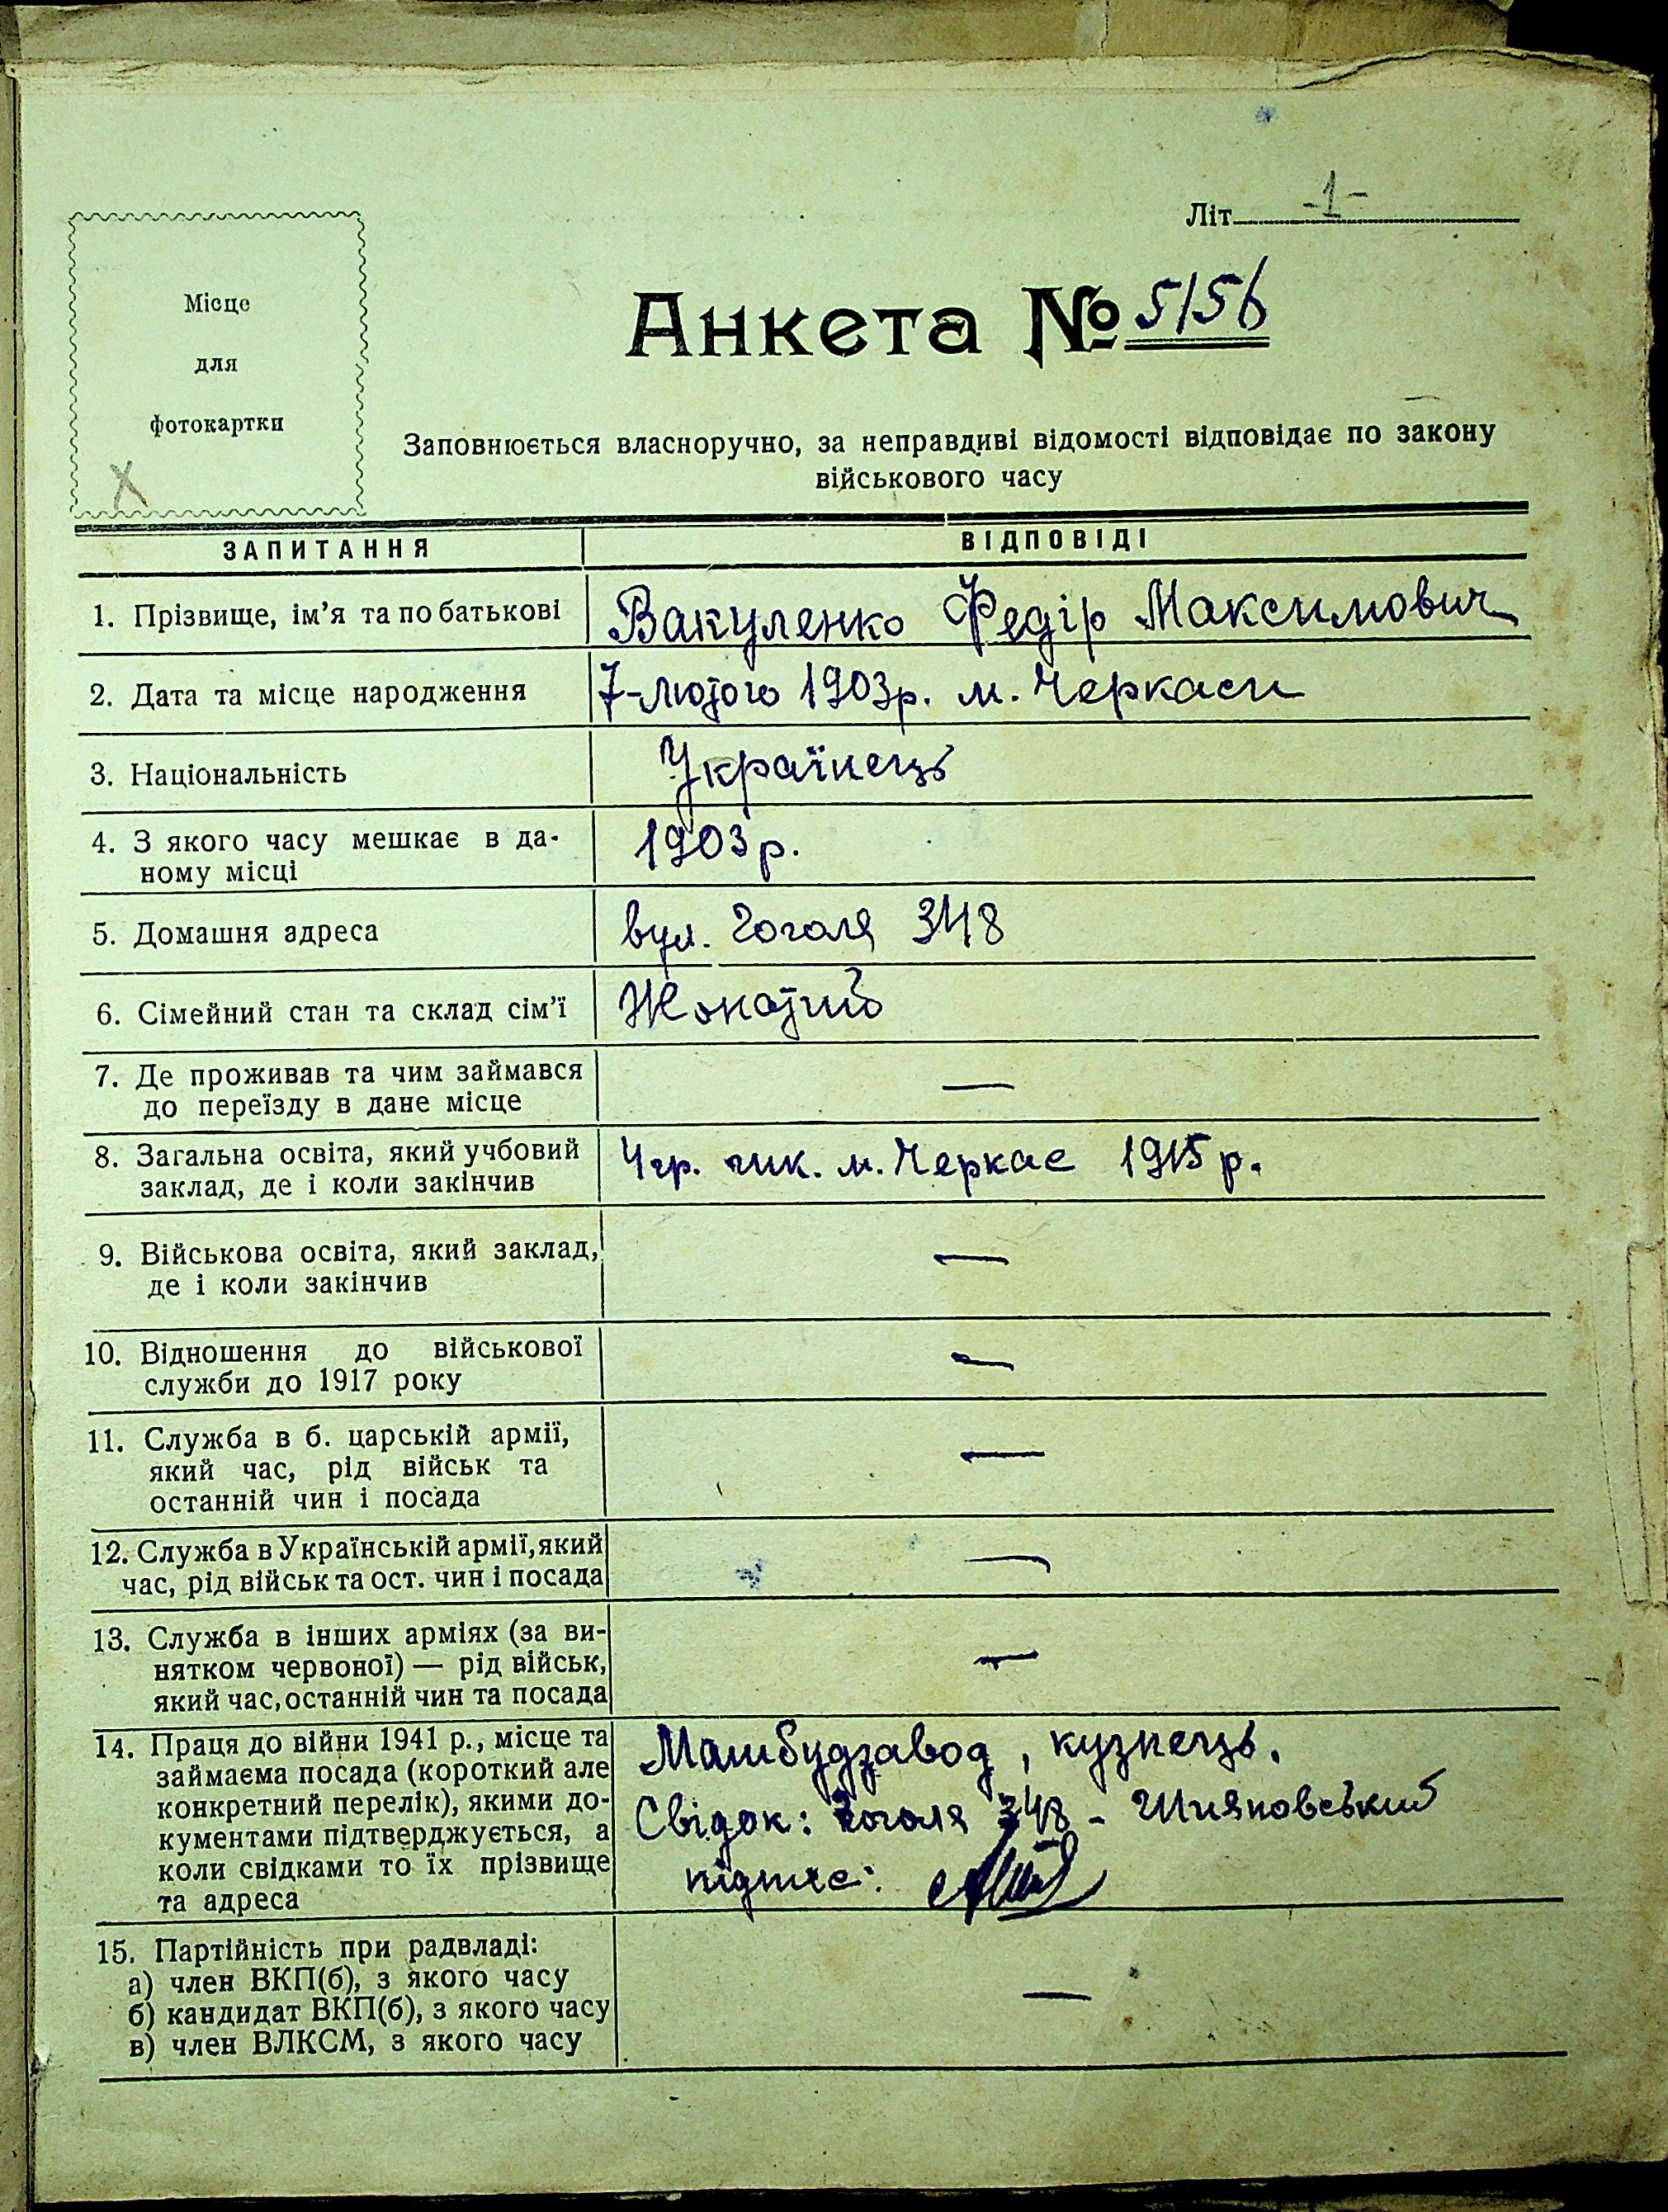 Літ -1-
Місце
для
фотокартки
Анкета № 5156
Заповнюється власноручно, за неправдиві відомості відповідає по закону
військового часу
ЗАПИТАННЯ ВІДПОВІДІ
1. Прізвище, ім'я та по батькові Вакуленко Федір Максимович
2. Дата та місце народження 7-лютого 1903р. м. Черкаси
3. Національність Українець
4. З якого часу мешкає в да-
ному місці 1903р.
5. Домашня адреса вул. Гоголя 348
6. Сімейний стан та склад сім'ї Жонатий
7. Де проживав та чим займався
до переїзду в дане місце —
8. Загальна освіта, який учбовий
заклад, де і коли закінчив 4гр. шк. м. Черкас 1915р.
9. Військова освіта, який заклад,
де і коли закінчив —
10. Відношення до військової
служби до 1917 року —
11. Служба в б. царській армії,
який час, рід військ та
останній чин і посада —
12. Служба в Українській армії, який
час, рід військ та ост. чин і посада —
13. Служба в інших арміях (за ви-
нятком червоної) — рід військ,
який час, останній чин та посада —
14. Праця до війни 1941 р., місце та
займаєма посада (короткий але
конкретний перелік), якими до-
кументами підтверджується, а
коли свідками то їх прізвище
та адреса
Машбудзавод, кузнець.
Свідок: Гоголя 348 - Шияновський
підпис:
15. Партійність при радвладі:
а) член ВКП(б), з якого часу
б) кандидат ВКП(б), з якого часу —
в) член ВЛКСМ, з якого часу